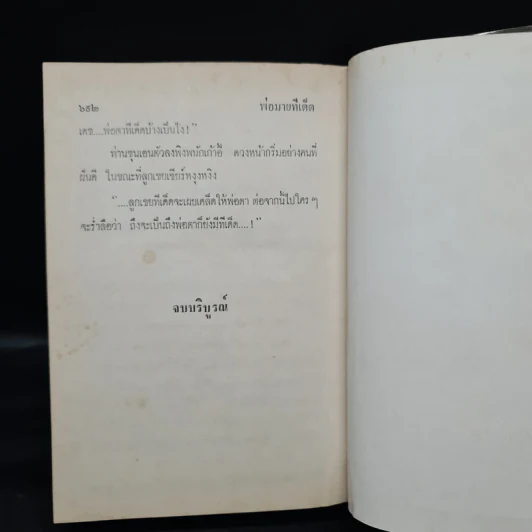 ๖๕๒ พ่อมายทีเด็ด
เดช....พ่อตาทีเด็ดบ้างเป็นไง!"
ท่านขุนเอนตัวลงพิงพนักเก้าอี้ ดวงหน้ากริ่มอย่างคนที่
ยินดี ในขณะที่ลูกเขยเชียร์หงุงหงิง
"....ลูกเขยทีเด็ดจะเผยเคล็ดให้พ่อตา ต่อจากนี้ไปใคร ๆ
จะร่ำลือว่า ถึงจะเป็นถึงพ่อตาก็ยังมีทีเด็ด....!"
จบบริบูรณ์